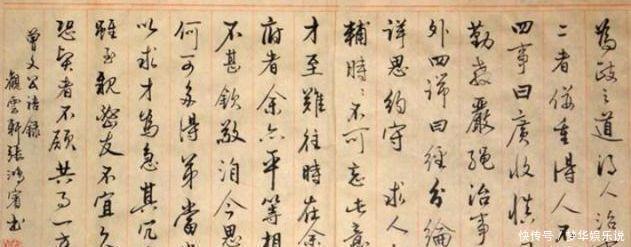 為政之道得人治
二者併重得人不
四事曰廣收慎
勤教嚴繩治事
外四詳曰經分綸
詳思約守 求人
輔時々不可忘此意
才至難往時在余
府者余亦平等相
不甚欽敬洎今思
何可多得弟當
以求才為急其冗
雖至親密友不宜久
恐賢者不願共事一方
曾文公語錄
觀雲軒張鴻賓书
快传号 / 梦华娱乐说